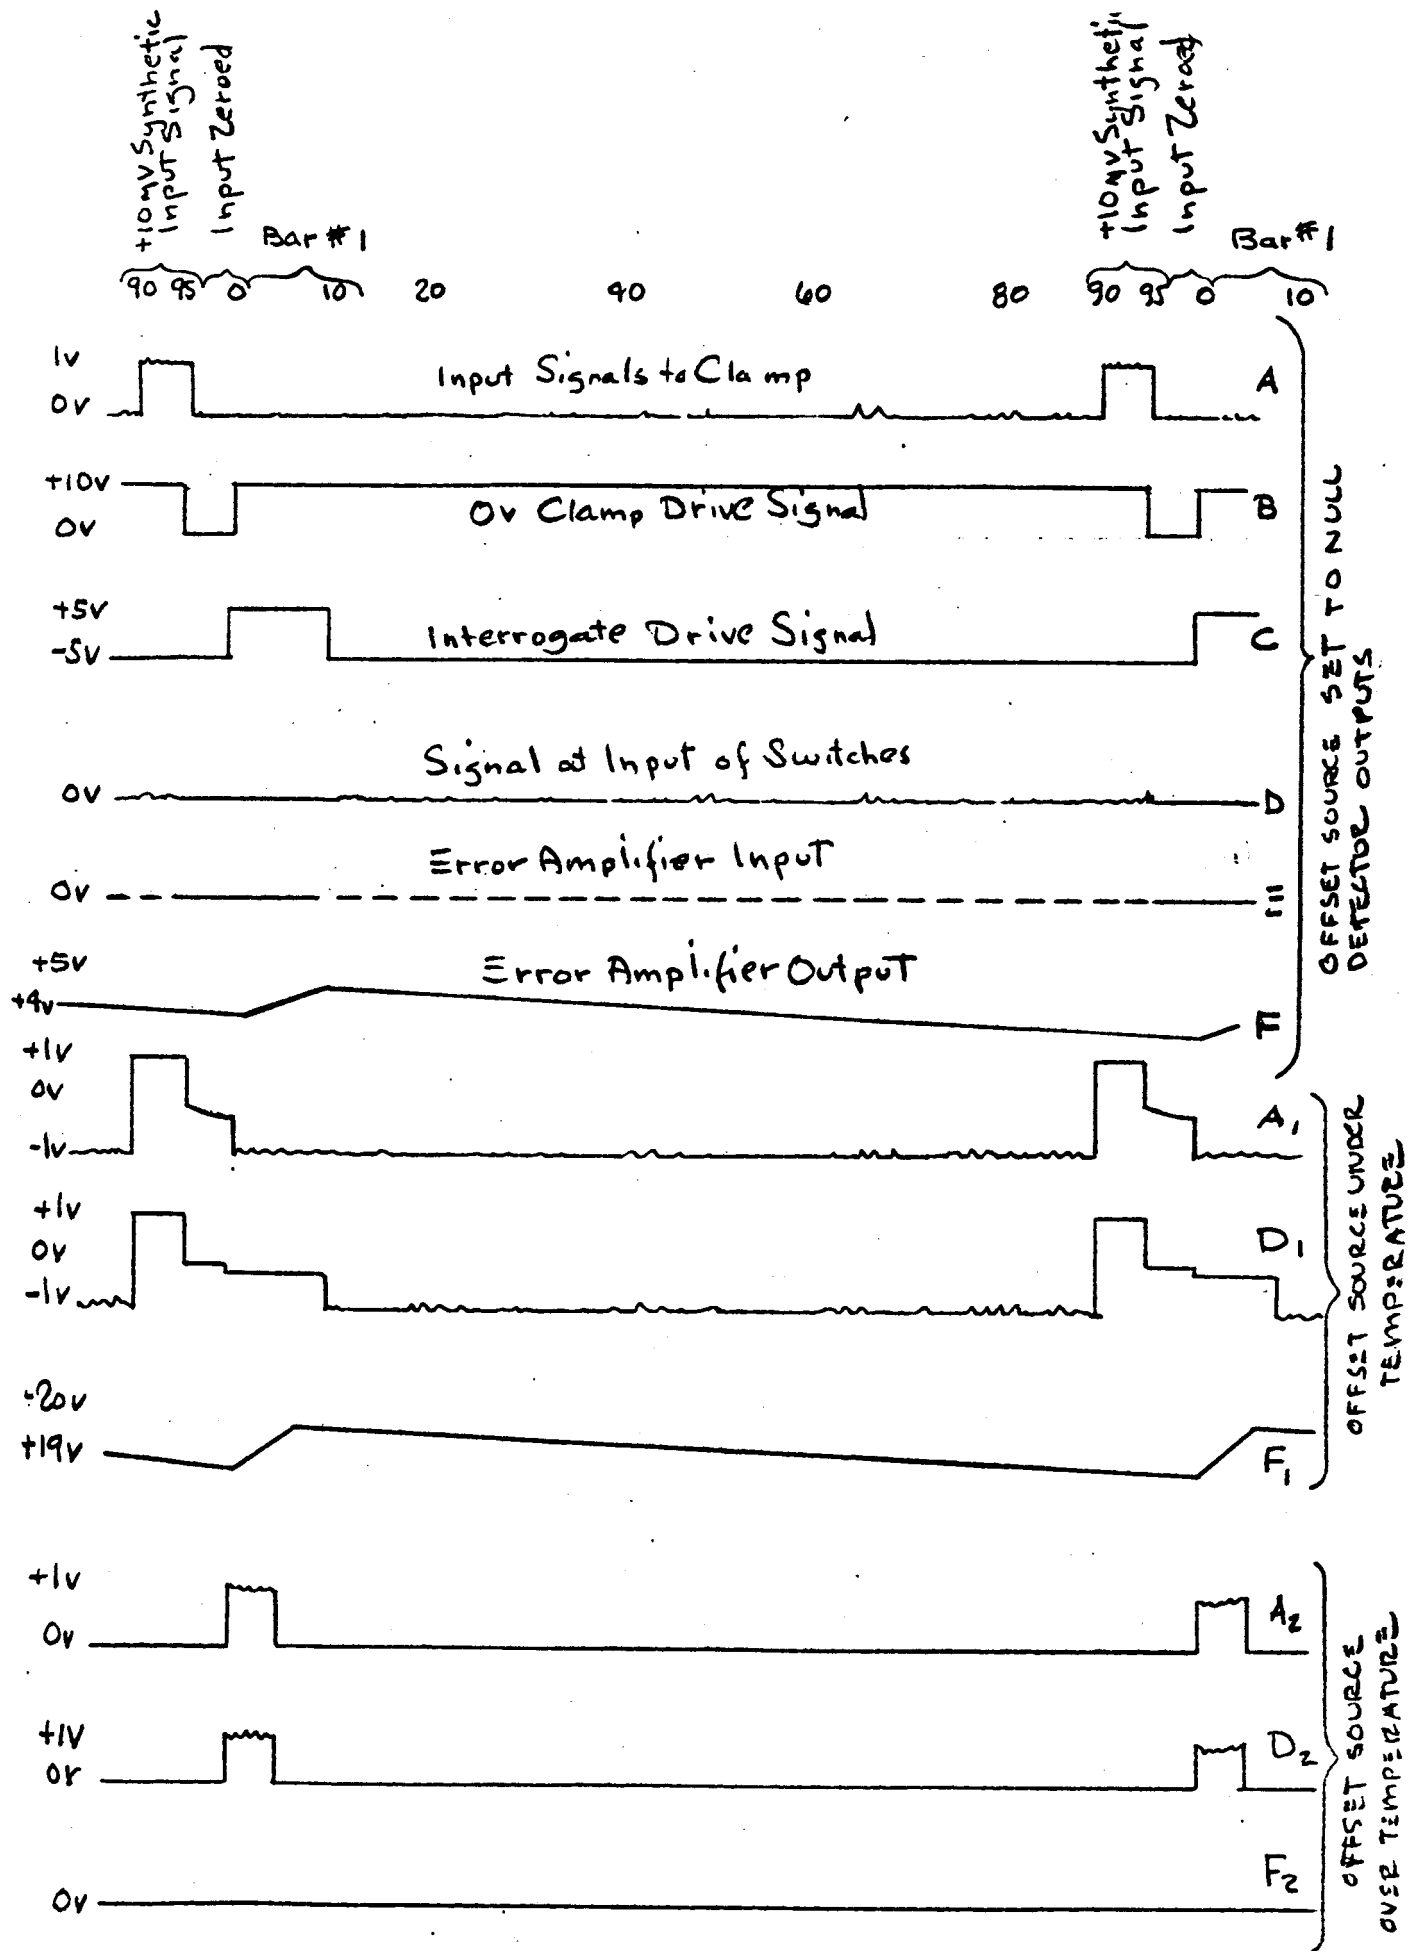 +10mV Synthetic
Input Signal
Input Zeroed
+10mV Synthetic
Input Signal
Input Zeroed
Bar #1
Bar #1
90 95 0 10 20 40 60 80 90 95 0 10
1v
0v
Input Signals to Clamp
A
+10v
0v
0v Clamp Drive Signal
B
+5v
-5v
Interrogate Drive Signal
C
Signal at Input of Switches
0v
D
Error Amplifier Input
0v
E
+5v
+4v
Error Amplifier Output
F
OFFSET SOURCE SET TO NULL
DETECTOR OUTPUTS
+1v
0v
-1v
A1
+1v
0v
-1v
D1
+20v
+19v
F1
OFFSET SOURCE UNDER
TEMPERATURE
+1v
0v
A2
+1v
0v
D2
0v
F2
OFFSET SOURCE
OVER TEMPERATURE